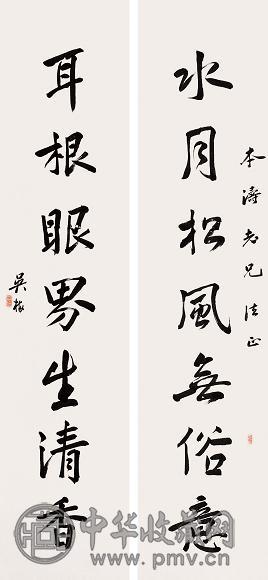 本濤老兄法正
水月松風無俗意
耳根眼界生清香
中华收藏网
www.pmv.cn